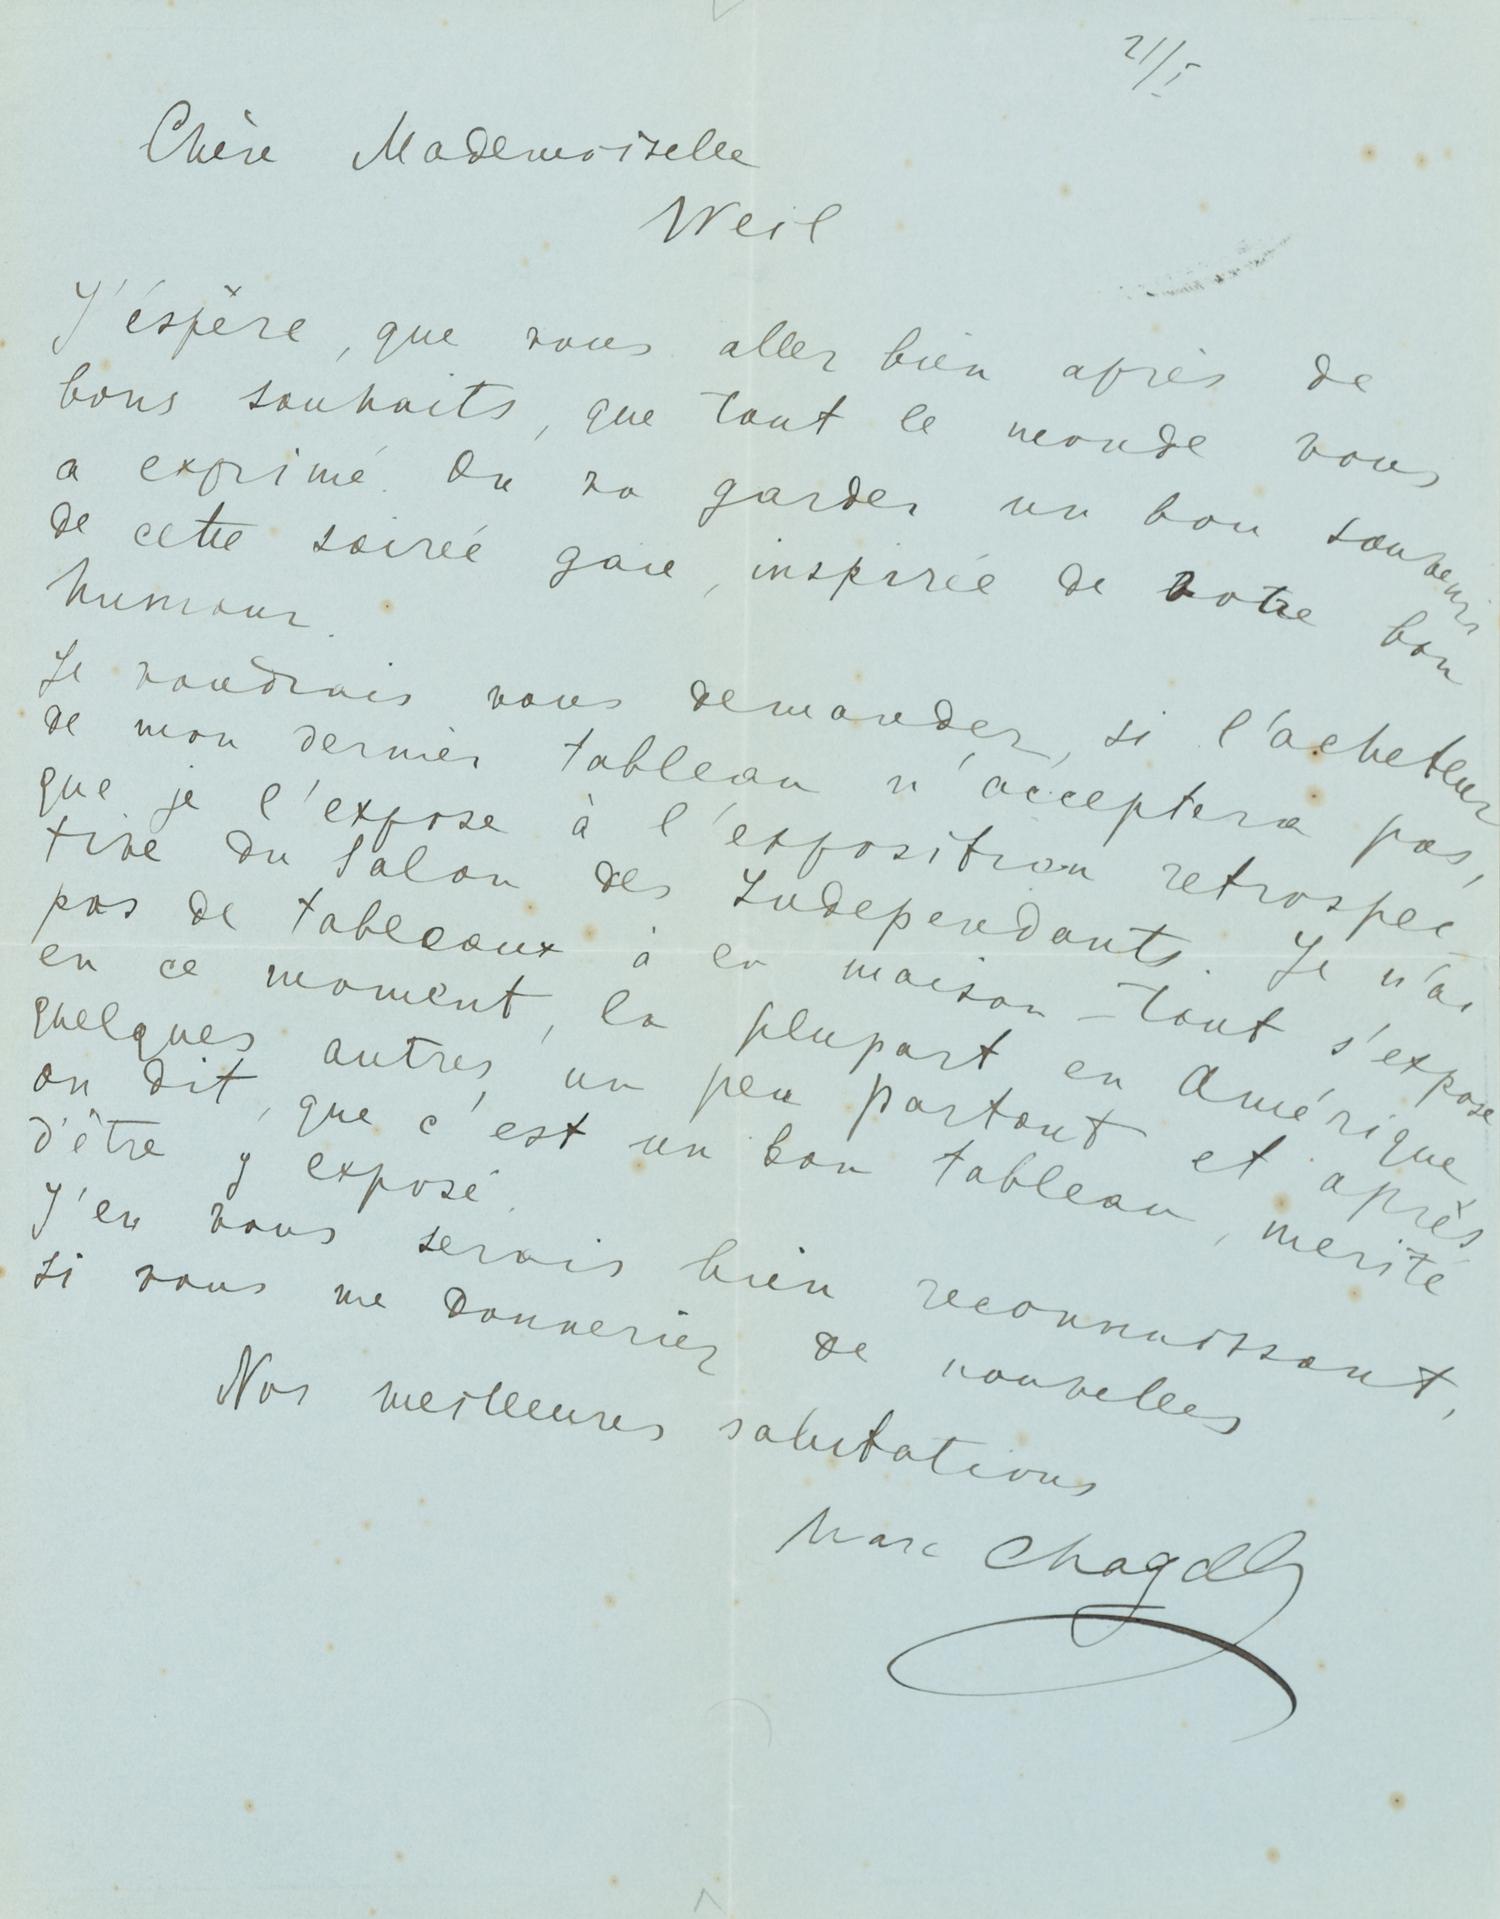 21/I
Chère Mademoiselle
Weil
J'éspère, que vous allez bien après de
bons souhaits, que tout le monde vous
a exprimé. On va garder un bon souvenir
de cette soireé gaie, inspirée de votre bon
humour.
Je voudrais vous demander, si l'acheteur
de mon dernièr tableau n'acceptera pas,
que je l'expose à l'exposition retrospec
tive du Salon des Independants. Je n'ai
pas de tableaux à la maison – tout s'expose
en ce moment, la plupart en Amérique
quelques autres, un peu partout et après
on dit, que c'est un bon tableau, merité
d'être y exposé.
J'en vous serais bien reconnaissant,
si vous me donneriez de nouvelles
Nos meilleures salutations
Marc Chagall